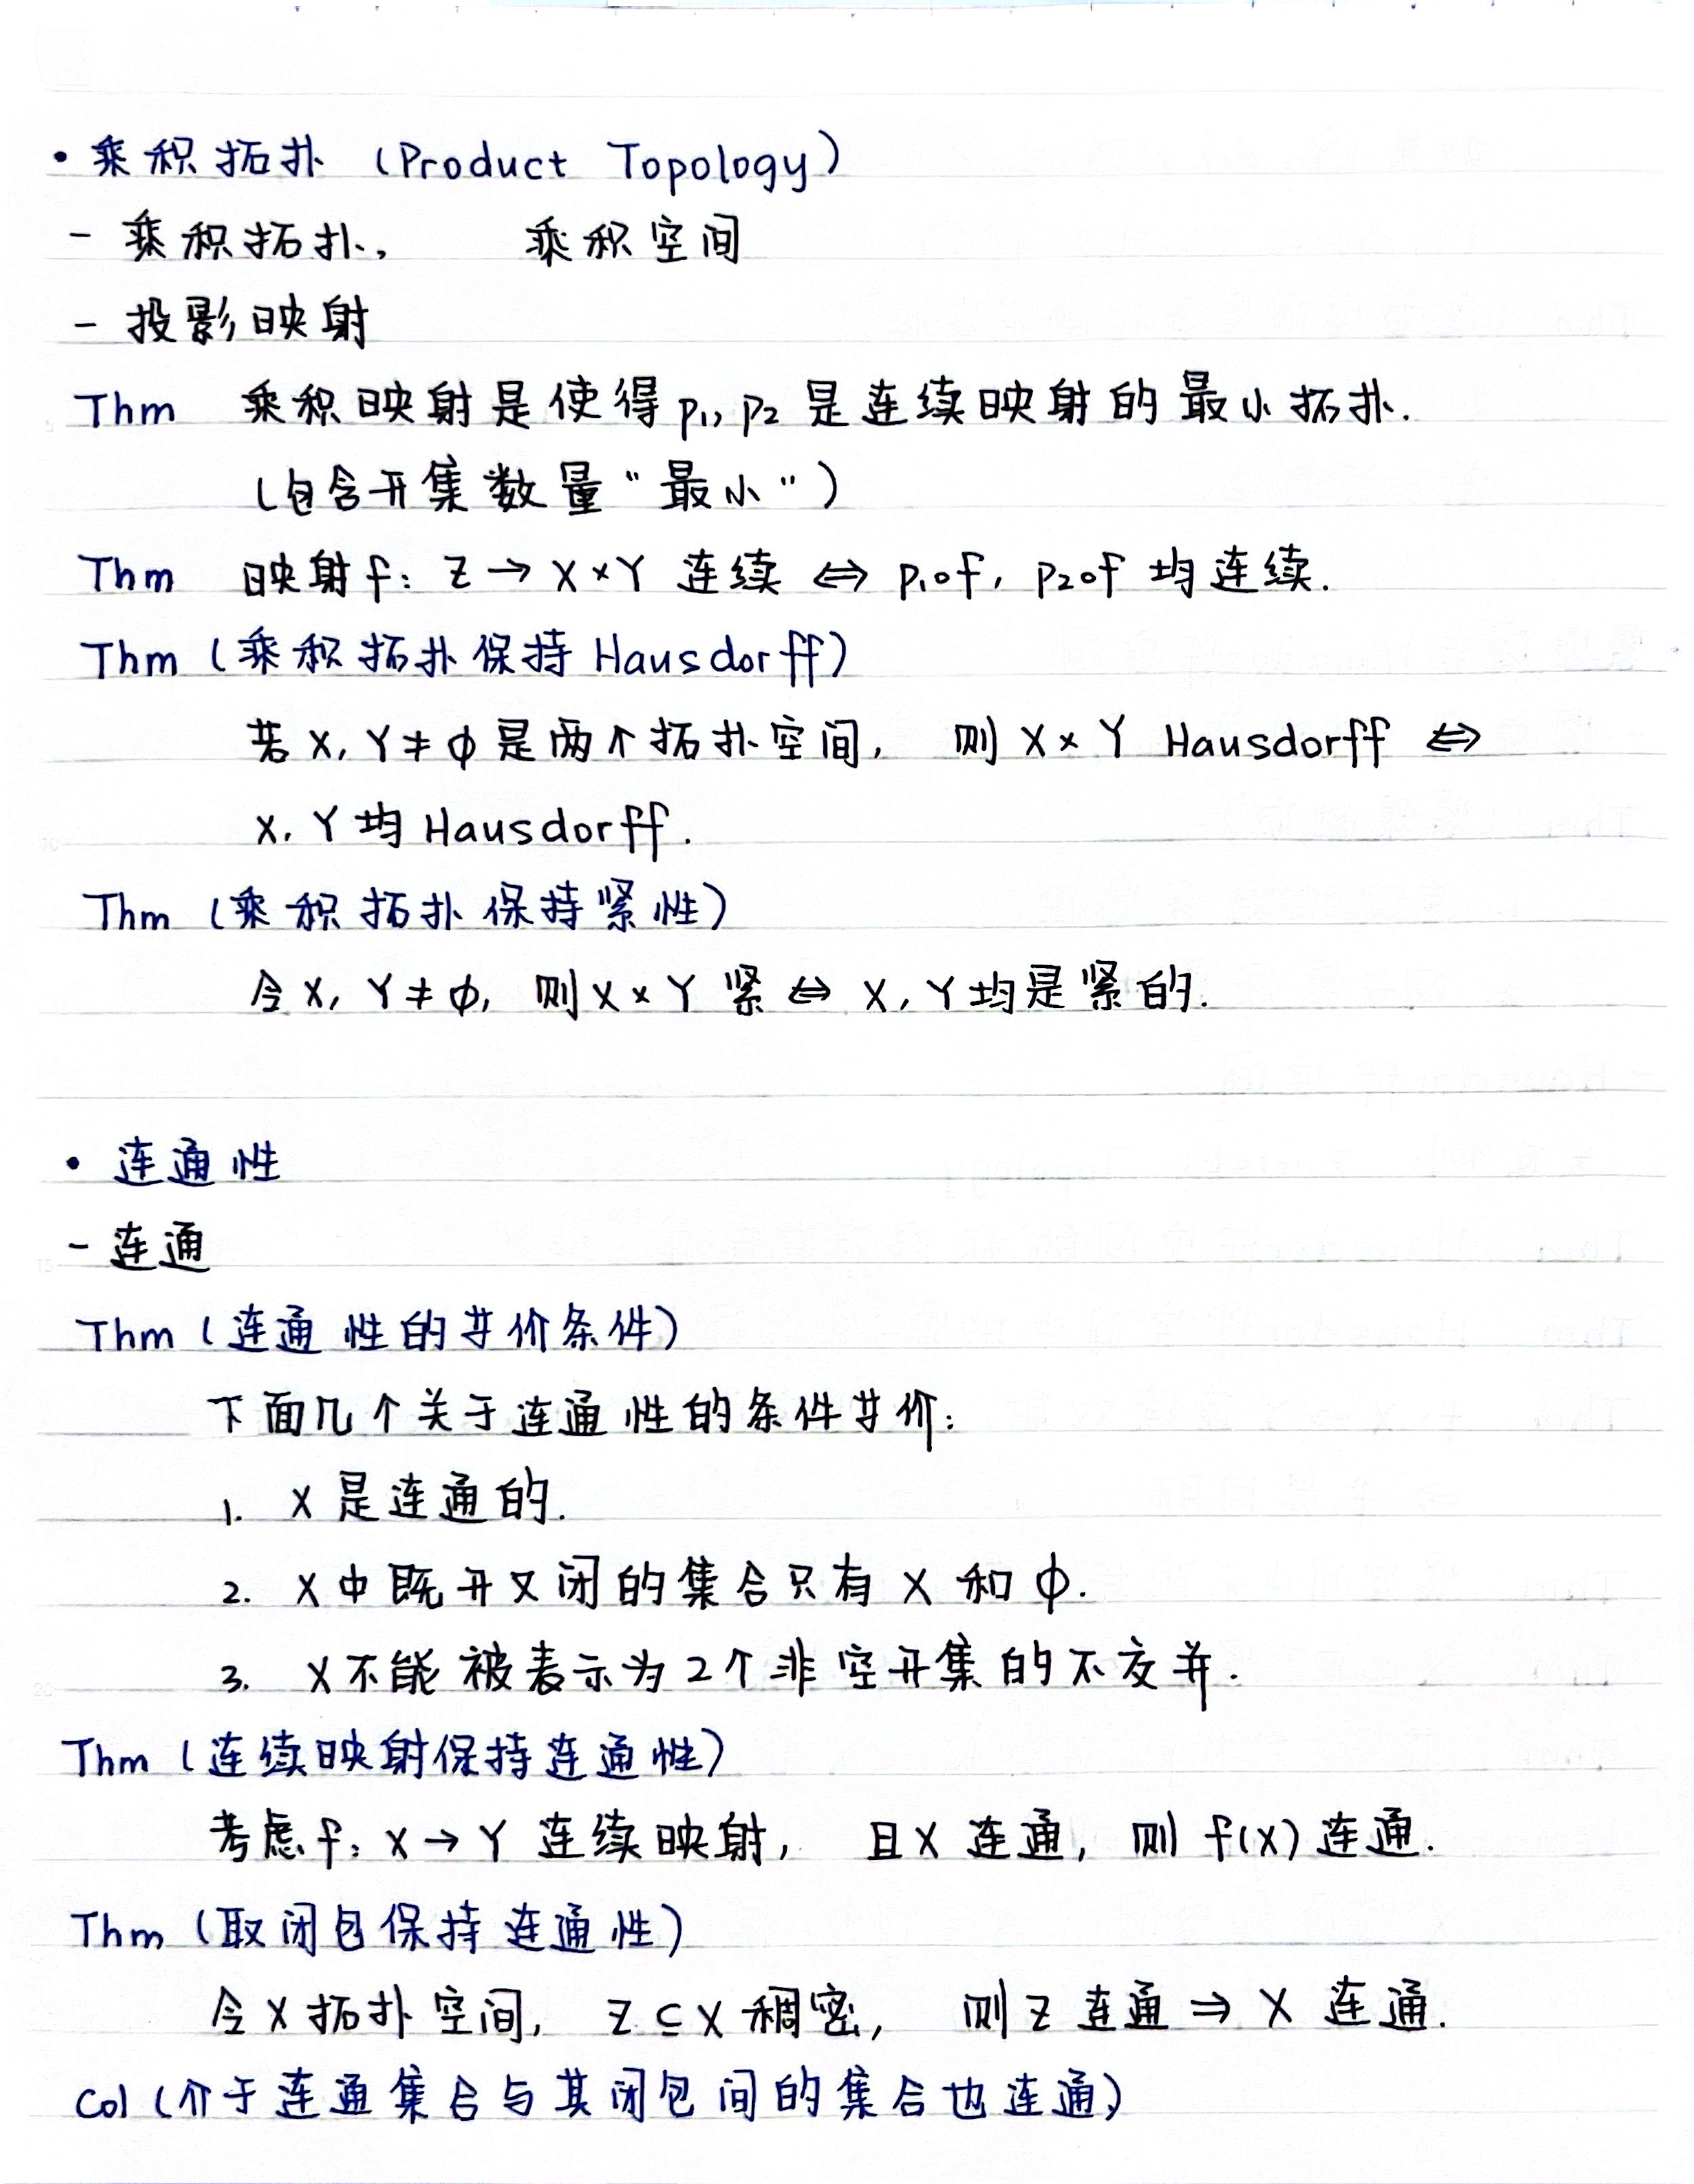 • 乘积拓扑 (Product Topology)
- 乘积拓扑, 乘积空间
- 投影映射
Thm 乘积映射是使得 p₁, p₂ 是连续映射的最小拓扑.
(包含开集数量 "最小")
Thm 映射 f: Z → X × Y 连续 ⇔ p₁∘f, p₂∘f 均连续.
Thm (乘积拓扑保持 Hausdorff)
若 X, Y ≠ ϕ 是两个拓扑空间, 则 X × Y Hausdorff ⇔
X, Y 均 Hausdorff.
Thm (乘积拓扑保持紧性)
令 X, Y ≠ ϕ, 则 X × Y 紧 ⇔ X, Y 均是紧的.
• 连通性
- 连通
Thm (连通性的等价条件)
下面几个关于连通性的条件等价:
1. X 是连通的.
2. X 中既开又闭的集合只有 X 和 ϕ.
3. X 不能被表示为 2 个非空开集的不交并.
Thm (连续映射保持连通性)
考虑 f: X → Y 连续映射, 且 X 连通, 则 f(X) 连通.
Thm (取闭包保持连通性)
令 X 拓扑空间, Z ⊆ X 稠密, 则 Z 连通 ⇒ X 连通.
Col (介于连通集合与其闭包间的集合也连通)